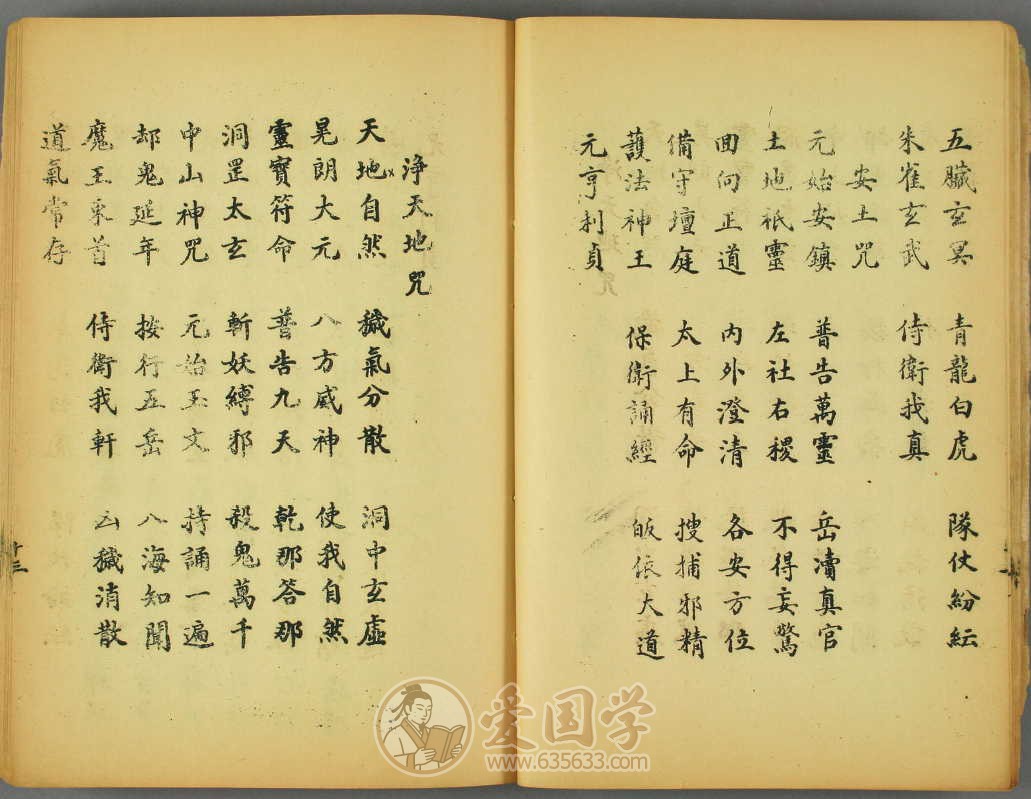 五臟玄冥 青龍白虎 隊仗紛紜
朱雀玄武 侍衛我真
安土咒
元始安鎮 普告萬靈 岳瀆真官
土地祇靈 左社右稷 不得妄驚
回向正道 內外澄清 各安方位
備守壇庭 太上有命 搜捕邪精
護法神王 保衛誦經 皈依大道
元亨利貞
淨天地咒
天地自然 穢氣分散 洞中玄虛
晃朗大元 八方威神 使我自然
靈寶符命 普告九天 乾那答那
洞罡太玄 斬妖縛邪 殺鬼萬千
中山神咒 元始玉文 持誦一遍
却鬼延年 按行五岳 八海知聞
魔王束首 侍衛我軒 凶穢消散
道氣常存
十三
爱国学
www.635633.com